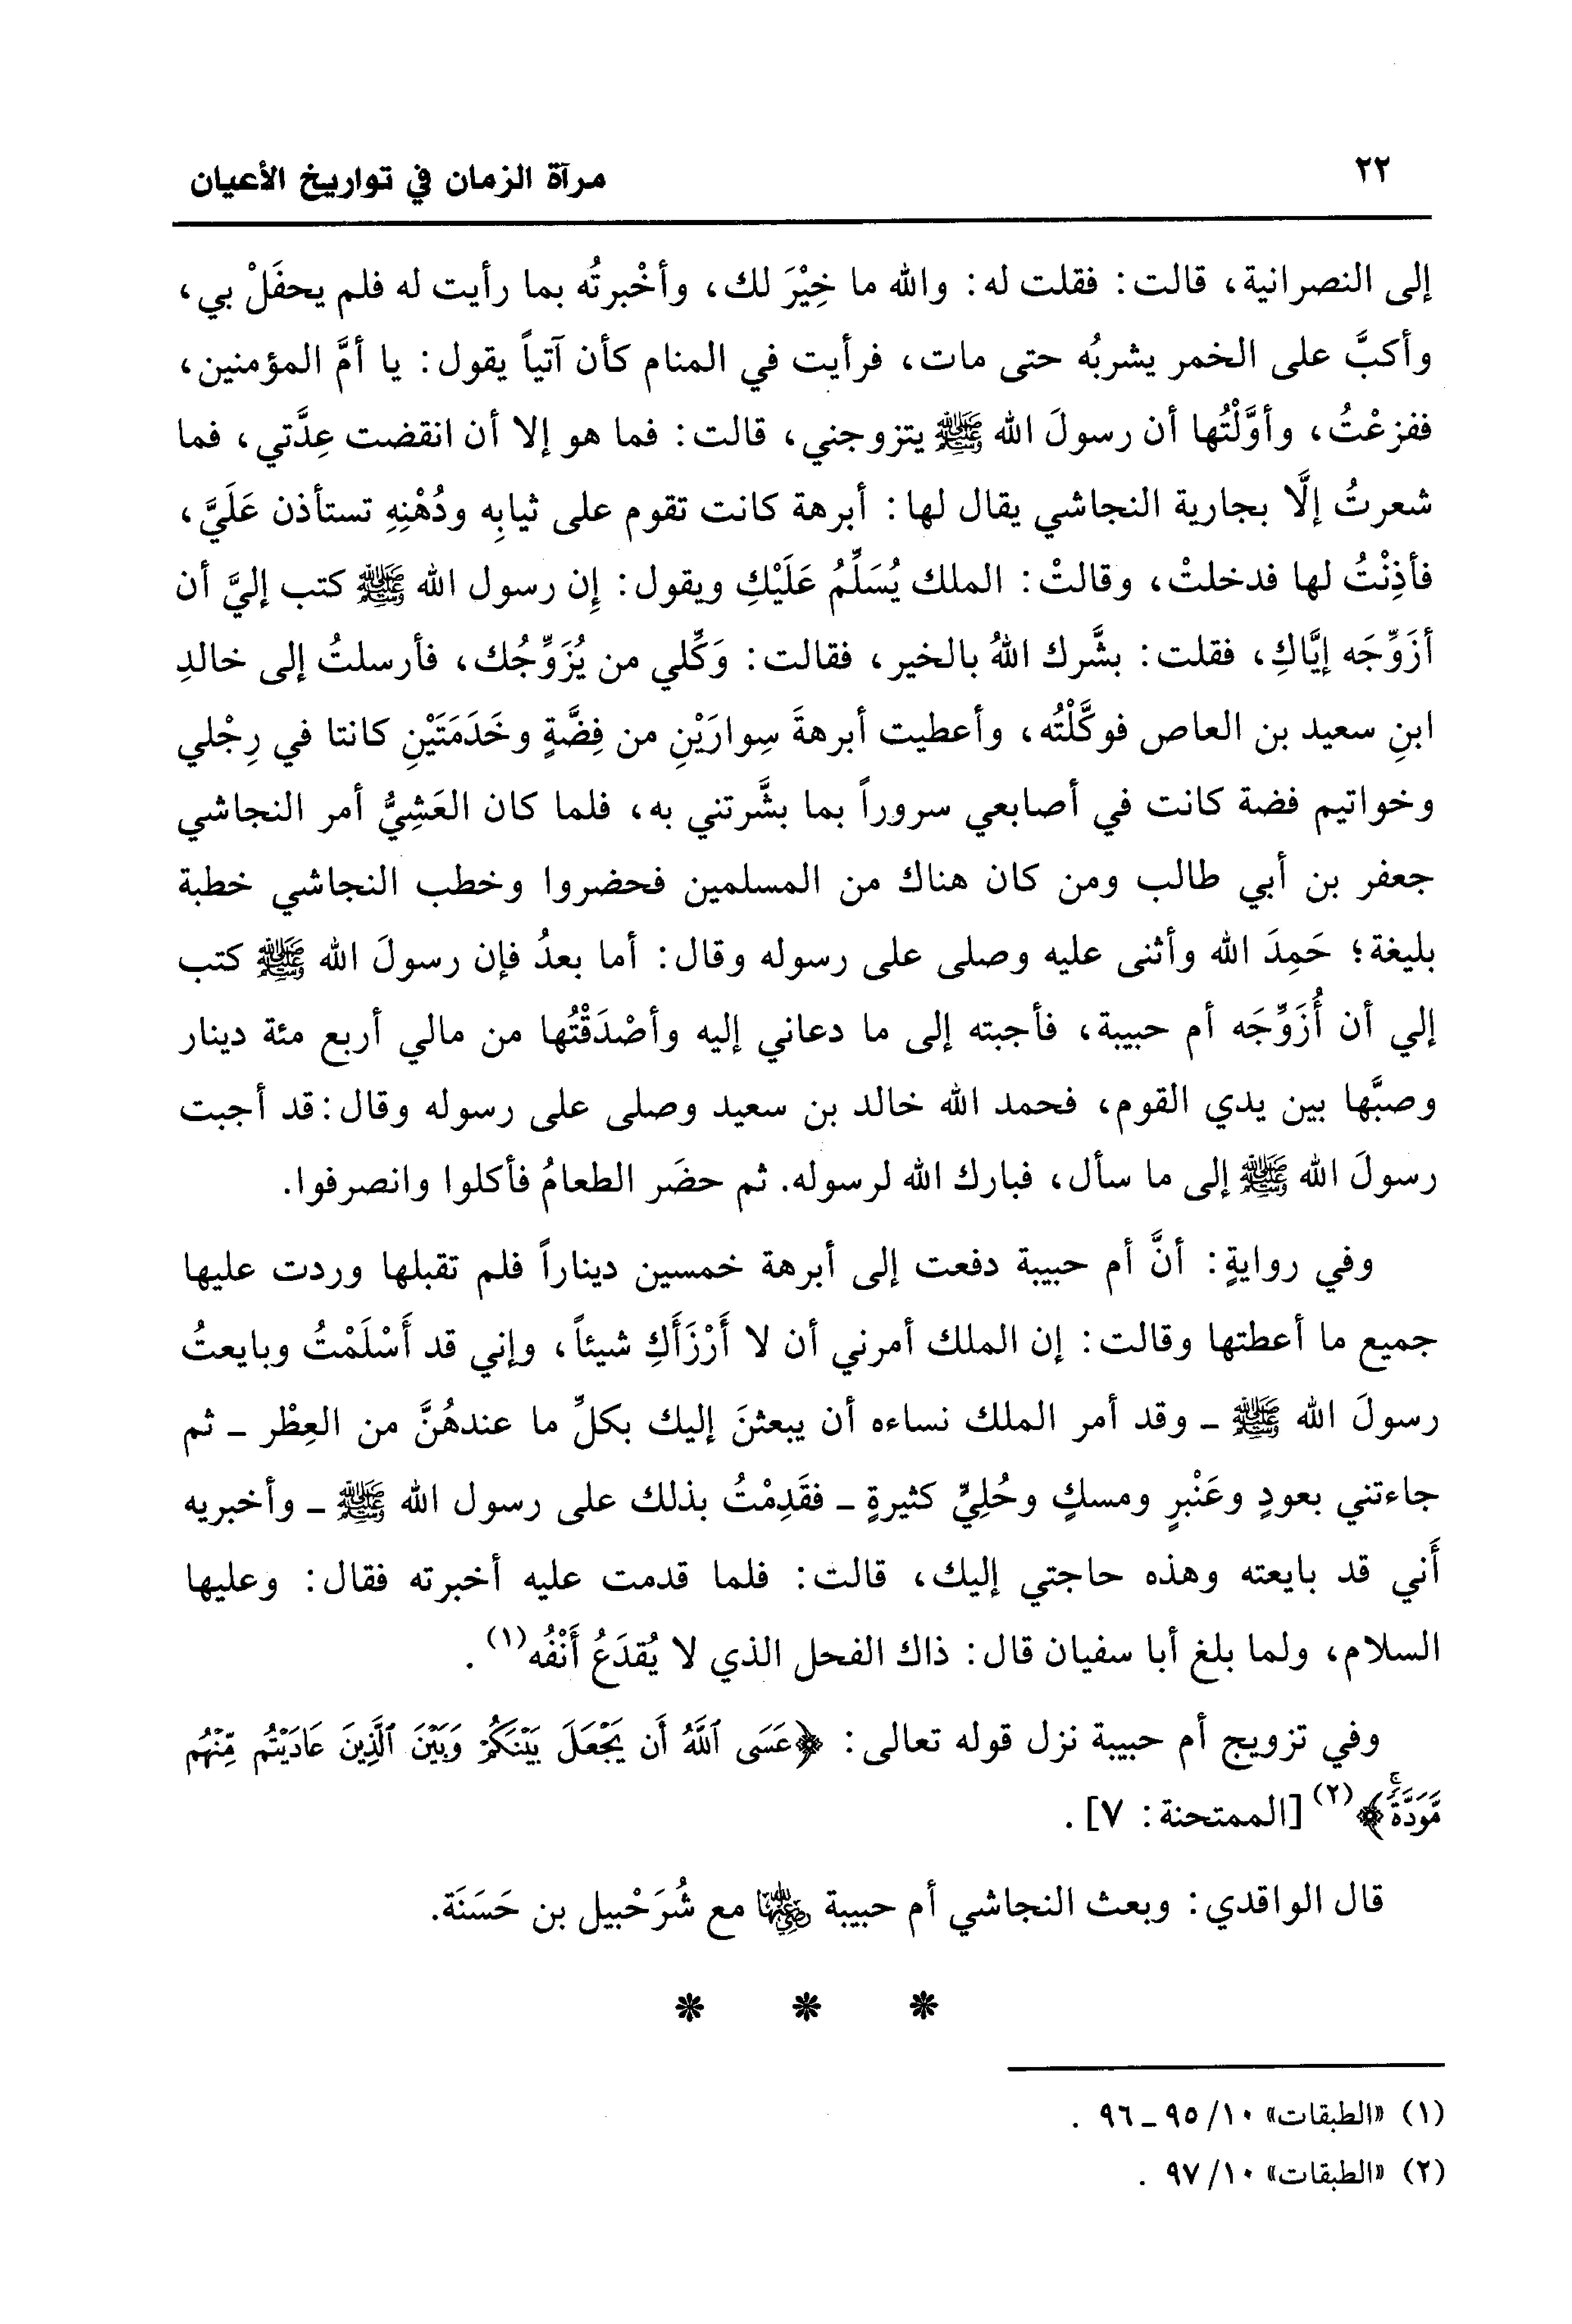 ٢٢
مرآة الزمان في تواريخ الأعيان
إلى النصرانية، قالت: فقلت له: والله ما خِيْرَ لك، وأخْبرتُه بما رأيت له فلم يحفَلْ بي،
وأكبَّ على الخمر يشربُه حتى مات، فرأيت في المنام كأن آتياً يقول: يا أمَّ المؤمنين،
ففزعْتُ، وأوَّلْتُها أن رسولَ الله ﷺ يتزوجني، قالت: فما هو إلا أن انقضت عِدَّتي، فما
شعرتُ إلَّا بجارية النجاشي يقال لها: أبرهة كانت تقوم على ثيابِه ودُهْنِهِ تستأذن عَلَيَّ،
فأذِنْتُ لها فدخلتْ، وقالتْ: الملك يُسَلِّمُ عَلَيْكِ ويقول: إِن رسول الله ﷺ كتب إليَّ أن
أزَوِّجَه إيَّاكِ، فقلت: بشَّرك اللهُ بالخير، فقالت: وَكِّلي من يُزَوِّجُك، فأرسلتُ إلى خالدِ
ابنِ سعيد بن العاص فوكَّلْتُه، وأعطيت أبرهةَ سِوارَيْنِ من فِضَّةٍ وخَدَمَتَيْنِ كانتا في رِجْلي
وخواتيم فضة كانت في أصابعي سروراً بما بشَّرتني به، فلما كان العَشِيُّ أمر النجاشي
جعفر بن أبي طالب ومن كان هناك من المسلمين فحضروا وخطب النجاشي خطبة
بليغة؛ حَمِدَ الله وأثنى عليه وصلى على رسوله وقال: أما بعدُ فإن رسولَ الله ﷺ كتب
إلي أن أُزَوِّجَه أم حبيبة، فأجبته إلى ما دعاني إليه وأصْدَقْتُها من مالي أربع مئة دينار
وصبَّها بين يدي القوم، فحمد الله خالد بن سعيد وصلى على رسوله وقال: قد أجبت
رسولَ الله ﷺ إلى ما سأل، فبارك الله لرسوله. ثم حضَر الطعامُ فأكلوا وانصرفوا.
وفي روايةٍ: أنَّ أم حبيبة دفعت إلى أبرهة خمسين ديناراً فلم تقبلها وردت عليها
جميع ما أعطتها وقالت: إن الملك أمرني أن لا أَرْزَأَكِ شيئاً، وإني قد أَسْلَمْتُ وبايعتُ
رسولَ الله ﷺ ـ وقد أمر الملك نساءه أن يبعثنَ إليك بكلِّ ما عندهُنَّ من العِطْر ـ ثم
جاءتني بعودٍ وعَنْبرٍ ومسكٍ وحُلِيٍّ كثيرةٍ ـ فقَدِمْتُ بذلك على رسول الله ﷺ ـ وأخبريه
أَني قد بايعته وهذه حاجتي إليك، قالت: فلما قدمت عليه أخبرته فقال: وعليها
السلام، ولما بلغ أبا سفيان قال: ذاك الفحل الذي لا يُقدَعُ أَنْفُه(١).
وفي تزويج أم حبيبة نزل قوله تعالى: ﴿عَسَى ٱللَّهُ أَن يَجْعَلَ بَيْنَكُمْ وَبَيْنَ ٱلَّذِينَ عَادَيْتُم مِّنْهُم
مَّوَدَّةً ۚ﴾(٢) [الممتحنة: ٧].
قال الواقدي: وبعث النجاشي أم حبيبة رضي الله عنها مع شُرَحْبيل بن حَسَنَة.
* * *
(١) «الطبقات» ١٠/ ٩٥ ـ ٩٦ .
(٢) «الطبقات» ١٠/ ٩٧ .